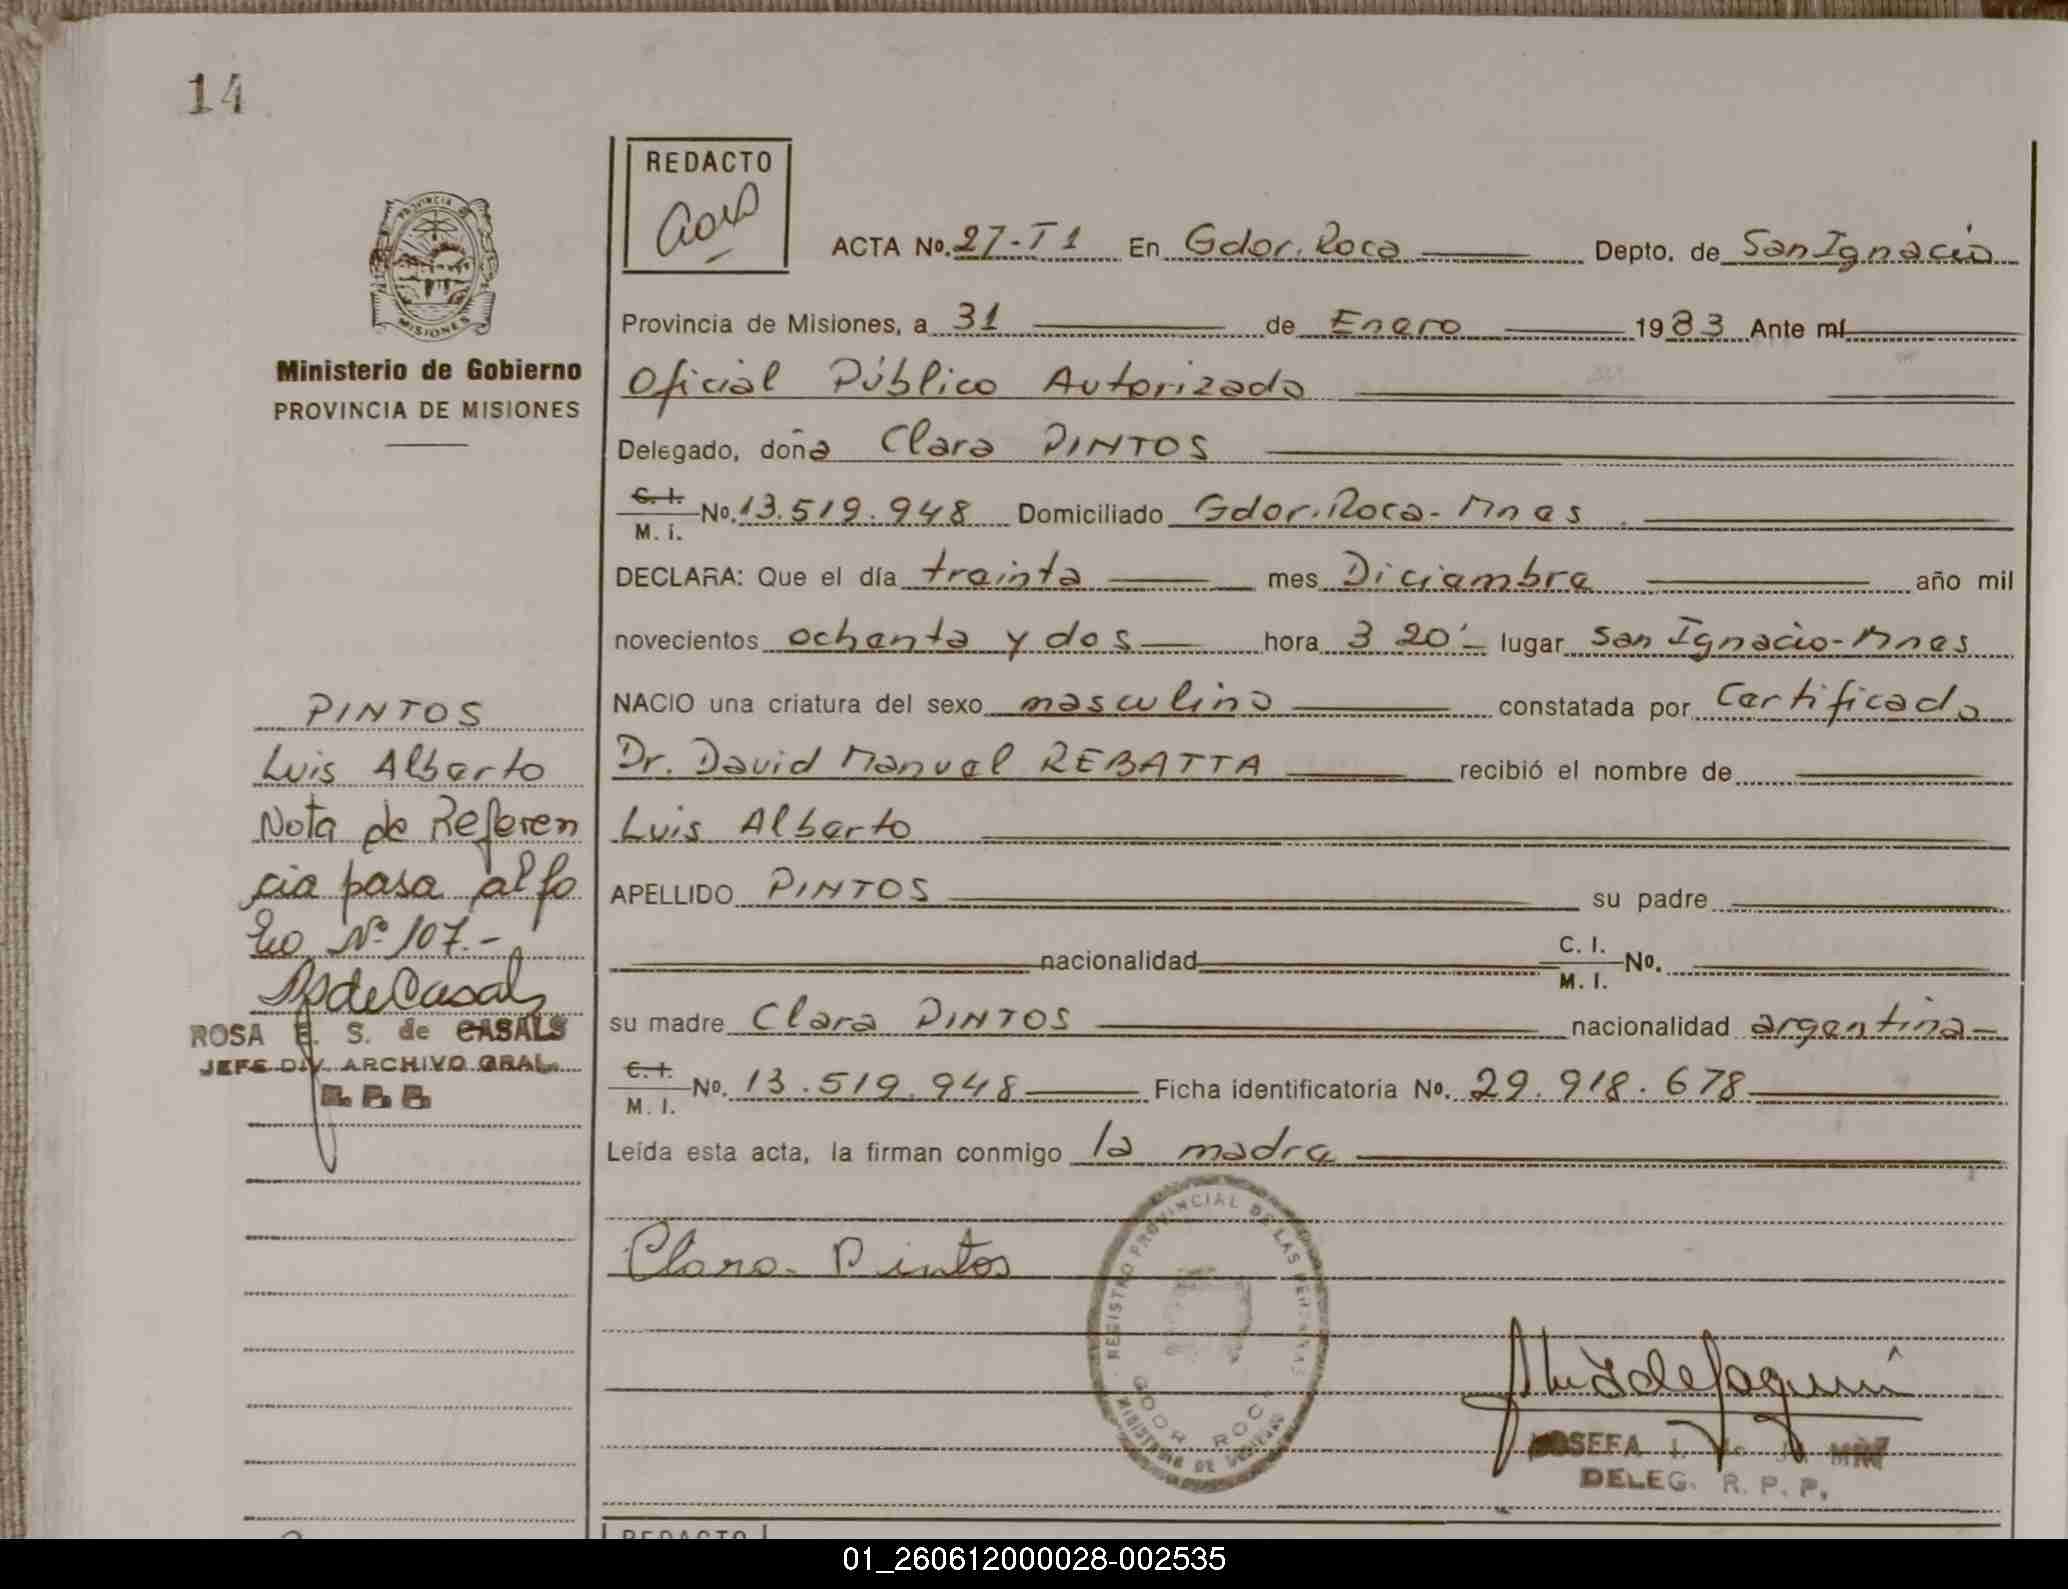 14
REDACTO
PROVINCIA DE
MISIONES
Ministerio de Gobierno
PROVINCIA DE MISIONES
ACTA No. 27-T1 En Gdor. Roca Depto. de San Ignacio
Provincia de Misiones, a 31 de Enero 1983 Ante mí
Oficial Público Autorizado
Delegado, doña Clara PINTOS
C. I.
M. I. No. 13.519.948 Domiciliado Gdor. Roca - Mnes
DECLARA: Que el día treinta mes Diciembre año mil
novecientos ochenta y dos hora 3 20' lugar San Ignacio - Mnes
NACIO una criatura del sexo masculino constatada por Certificado
Dr. David Manuel REBATTA recibió el nombre de
Luis Alberto
APELLIDO PINTOS su padre
nacionalidad C. I.
M. I. No.
su madre Clara PINTOS nacionalidad argentina
C. I.
M. I. No. 13.519.948 Ficha identificatoria No. 29.918.678
Leída esta acta, la firman conmigo la madre
Clara Pintos
REGISTRO PROVINCIAL DE LAS PERSONAS
GDOR ROCA
MINISTERIO DE GOBIERNO
JOSEFA
DELEG. R. P. P.
PINTOS
Luis Alberto
Nota de Referen
cia pasa al fo
lio Nº 107.-
ROSA E. S. de CASALS
JEFE DIV. ARCHIVO GRAL.
REDACTO
01_260612000028-002535